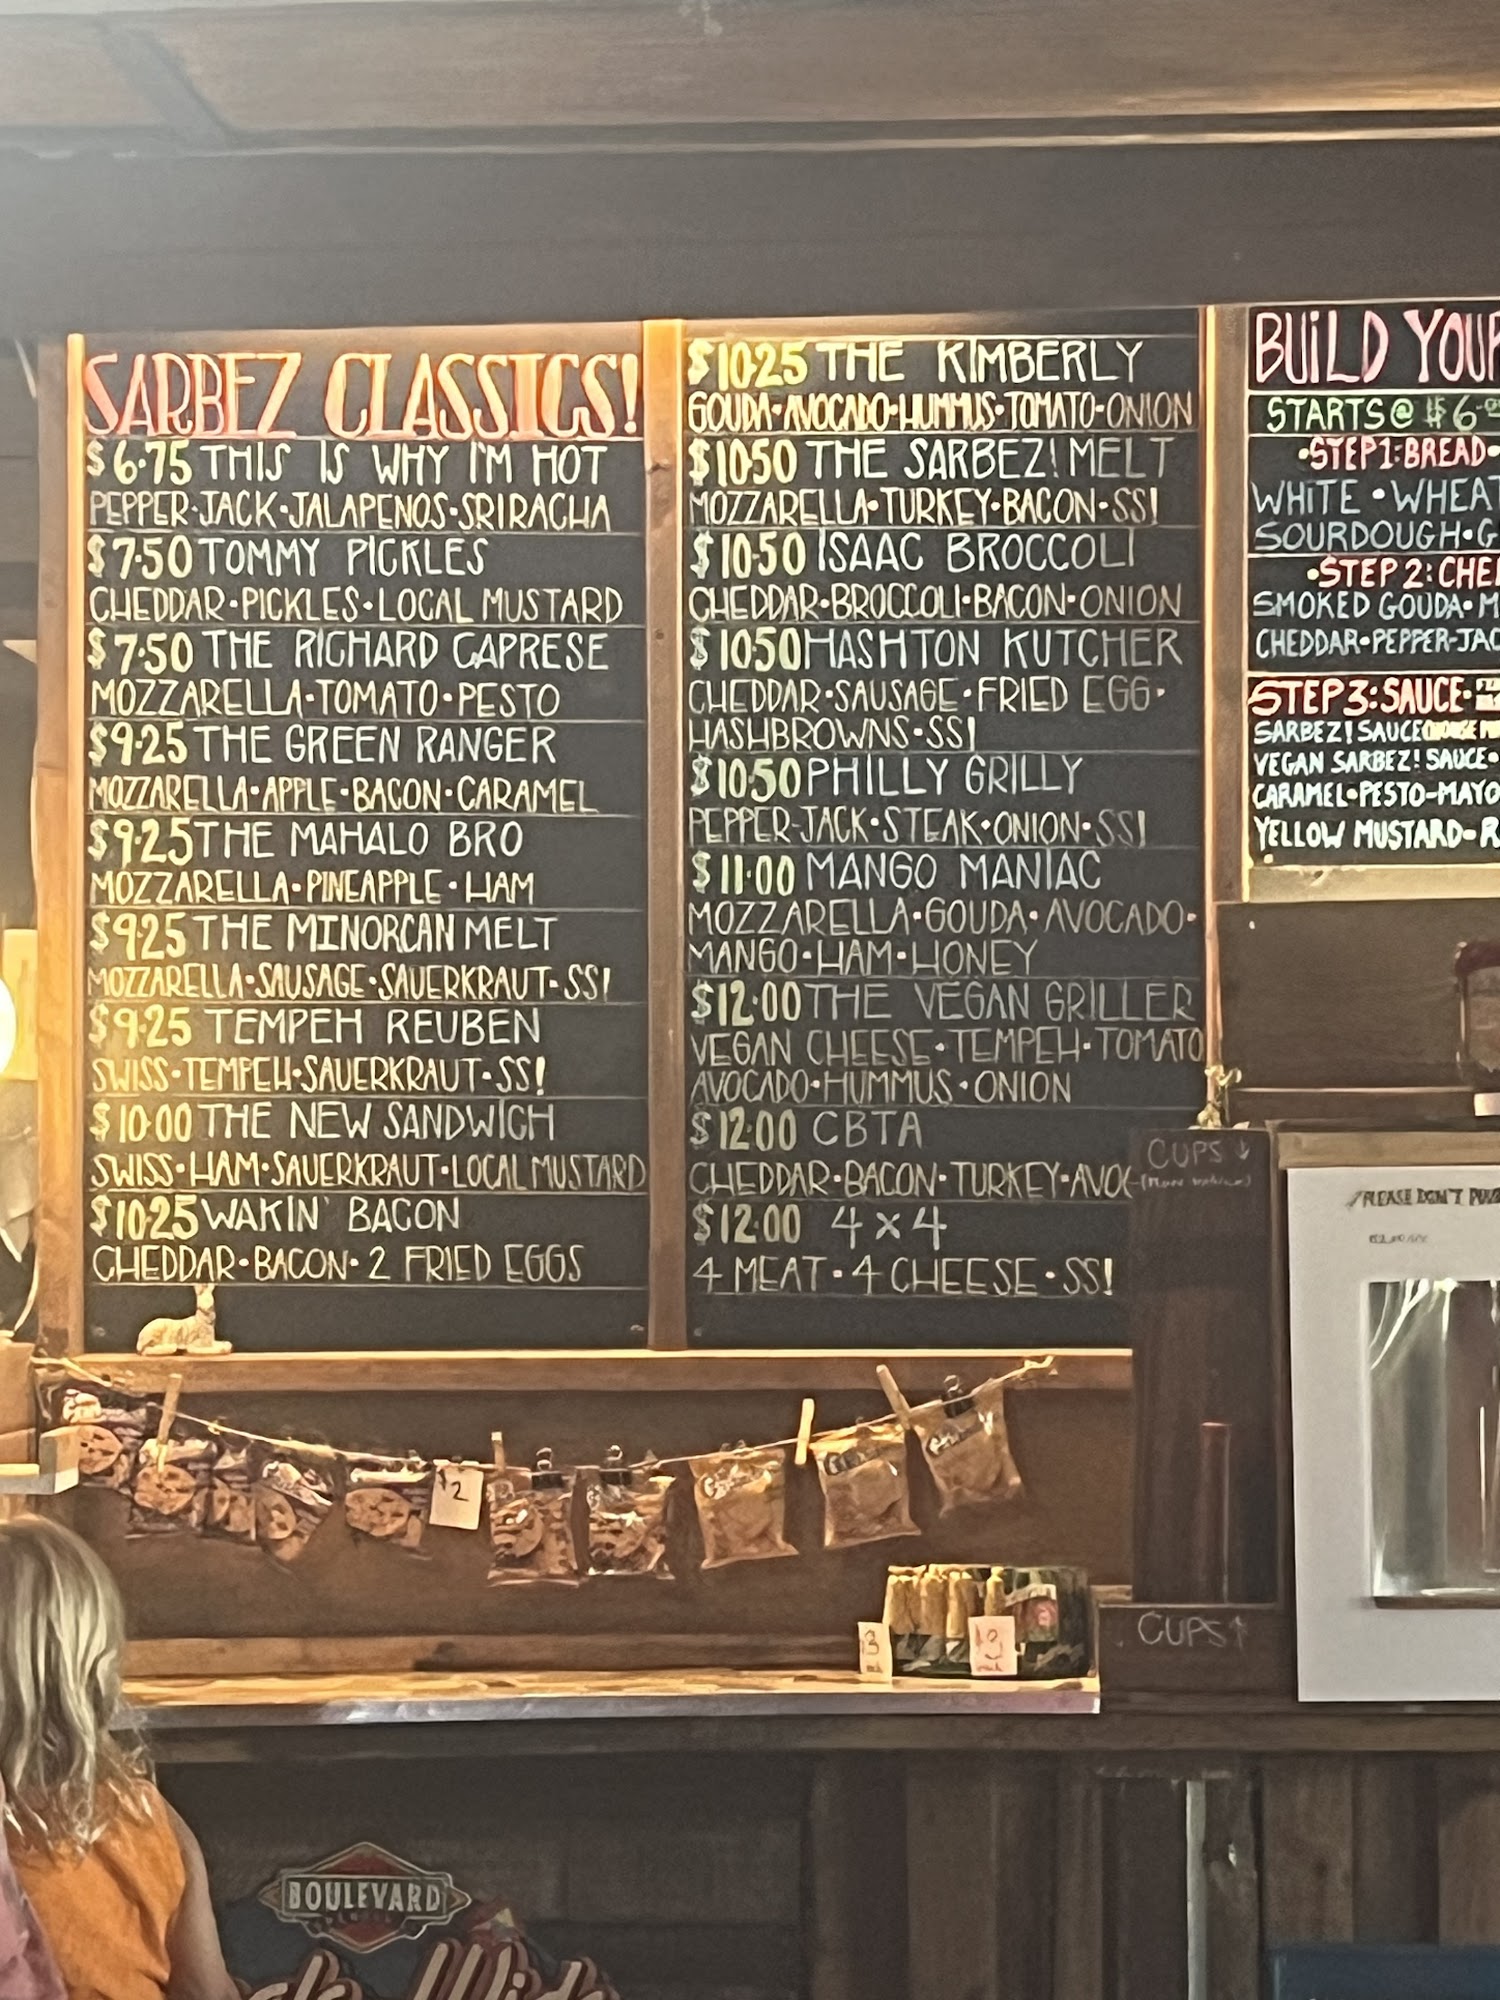 SARBEZ CLASSICS!
$6.75 THIS IS WHY I'M HOT
PEPPER-JACK•JALAPENOS•SRIRACHA
$7.50 TOMMY PICKLES
CHEDDAR•PICKLES•LOCAL MUSTARD
$7.50 THE RICHARD CAPRESE
MOZZARELLA•TOMATO•PESTO
$9.25 THE GREEN RANGER
MOZZARELLA•APPLE•BACON•CARAMEL
$9.25 THE MAHALO BRO
MOZZARELLA•PINEAPPLE•HAM
$9.25 THE MINORCAN MELT
MOZZARELLA•SAUSAGE•SAUERKRAUT•SS!
$9.25 TEMPEH REUBEN
SWISS•TEMPEH•SAUERKRAUT•SS!
$10.00 THE NEW SANDWICH
SWISS•HAM•SAUERKRAUT•LOCAL MUSTARD
$10.25 WAKIN' BACON
CHEDDAR•BACON•2 FRIED EGGS
$10.25 THE KIMBERLY
GOUDA•AVOCADO•HUMMUS•TOMATO•ONION
$10.50 THE SARBEZ! MELT
MOZZARELLA•TURKEY•BACON•SS!
$10.50 ISAAC BROCCOLI
CHEDDAR•BROCCOLI•BACON•ONION
$10.50 HASHTON KUTCHER
CHEDDAR•SAUSAGE•FRIED EGG•
HASHBROWNS•SS!
$10.50 PHILLY GRILLY
PEPPER-JACK•STEAK•ONION•SS!
$11.00 MANGO MANIAC
MOZZARELLA•GOUDA•AVOCADO•
MANGO•HAM•HONEY
$12.00 THE VEGAN GRILLER
VEGAN CHEESE•TEMPEH•TOMATO
AVOCADO•HUMMUS•ONION
$12.00 CBTA
CHEDDAR•BACON•TURKEY•AVOC
$12.00 4 x 4
4 MEAT•4 CHEESE•SS!
BUILD YOUR
STARTS @ $6
•STEP 1: BREAD•
WHITE•WHEAT
SOURDOUGH•G
•STEP 2: CHE
SMOKED GOUDA•M
CHEDDAR•PEPPER-JAC
STEP 3: SAUCE•
SARBEZ! SAUCE
VEGAN SARBEZ! SAUCE•
CARAMEL•PESTO-MAYO
YELLOW MUSTARD•R
CUPS ↓
PLEASE DON'T
$2
$3
CUPS ↑
BOULEVARD